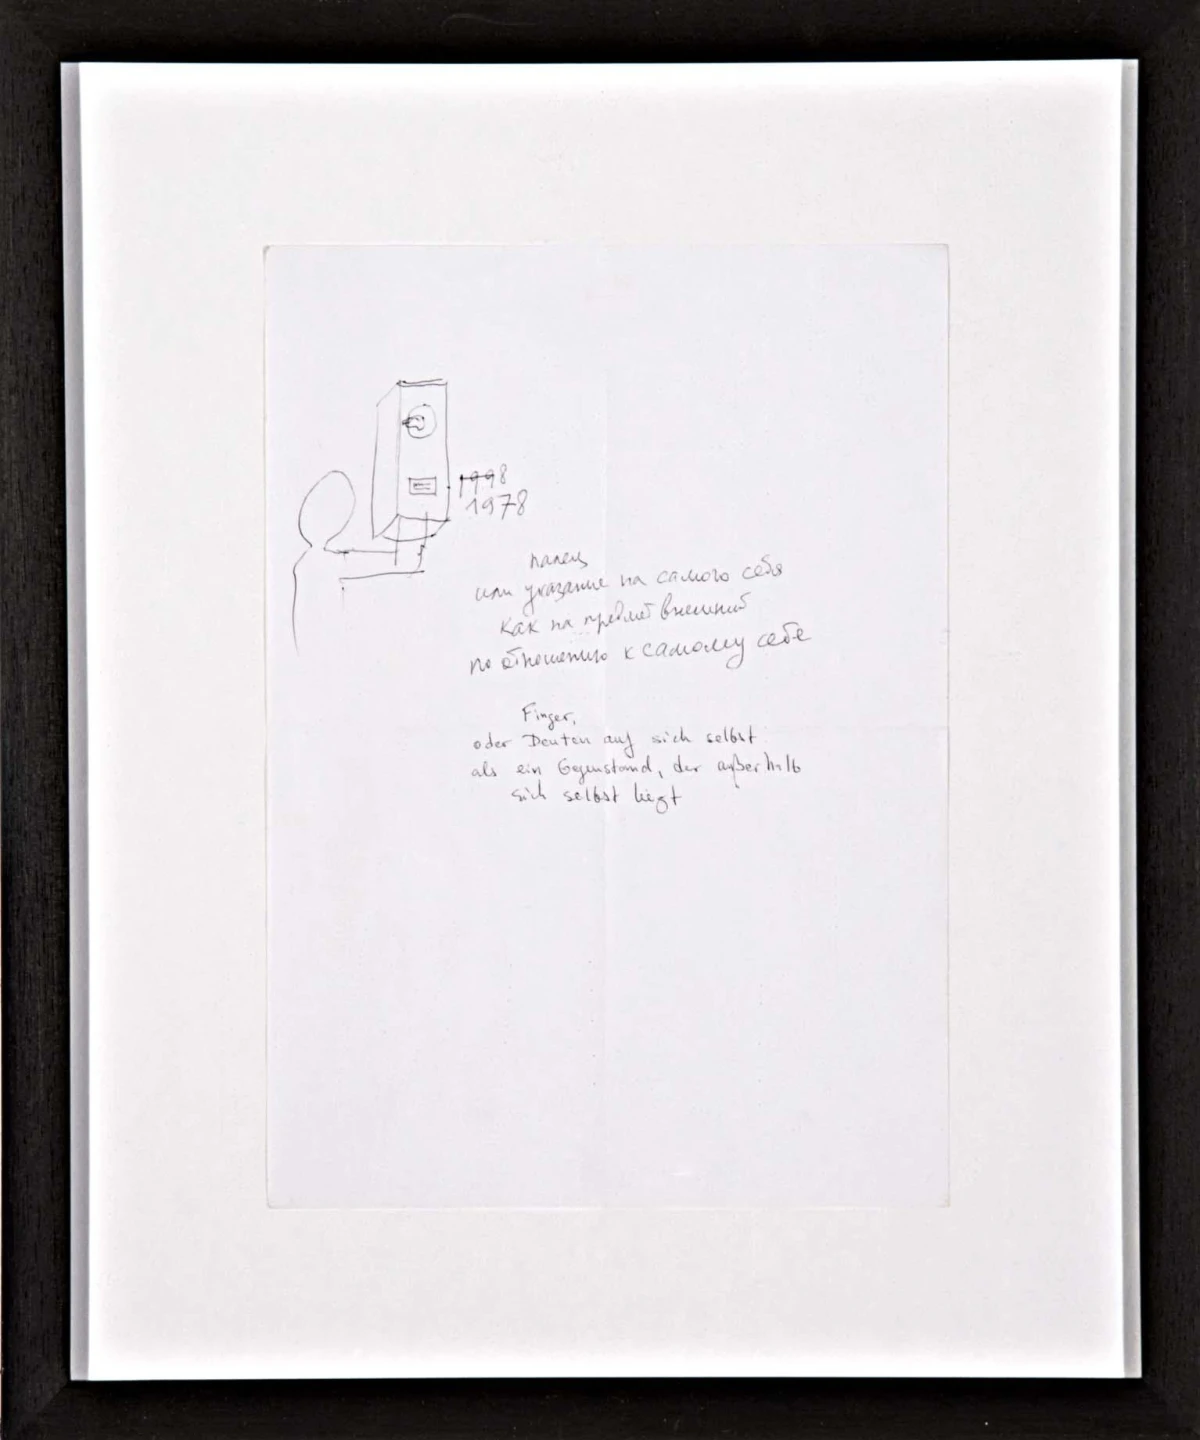 1998
1978
палец
или указание на самого себя
как на предмет внешний
по отношению к самому себе
Finger,
oder Deuten auf sich selbst
als ein Gegenstand, der außerhalb
sich selbst liegt